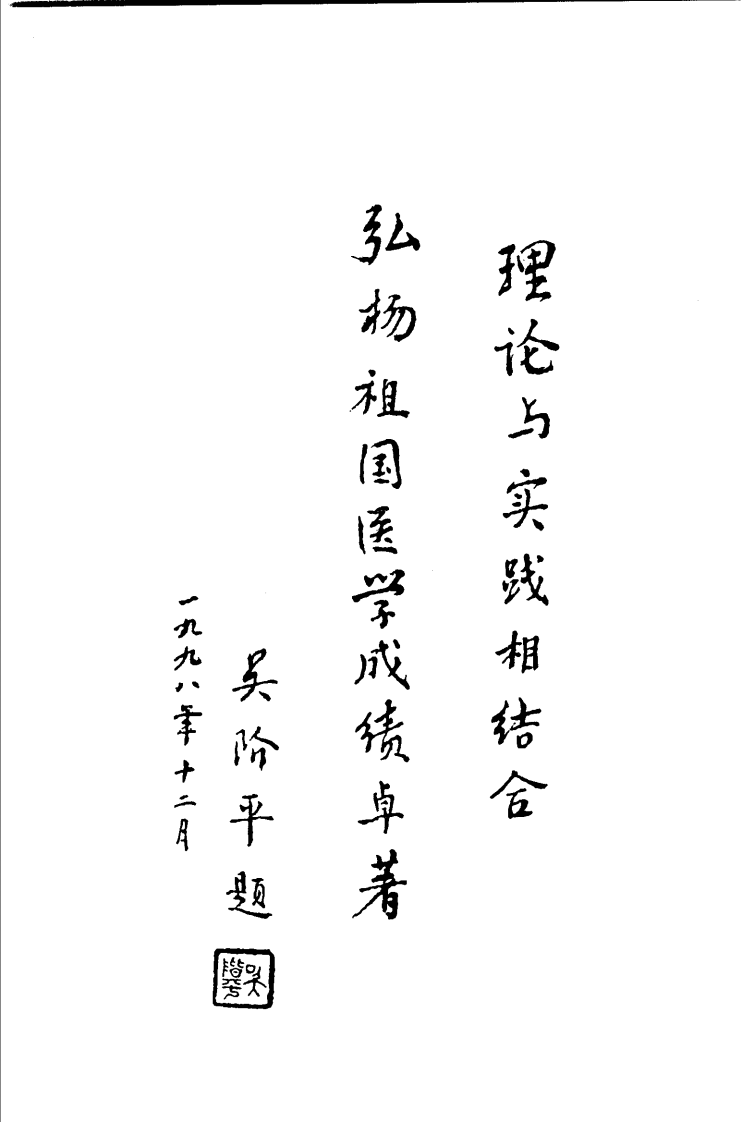 理论与实践相结合
弘杨祖国医学成绩卓著
吴阶平题
一九九八年十二月
吴阶平